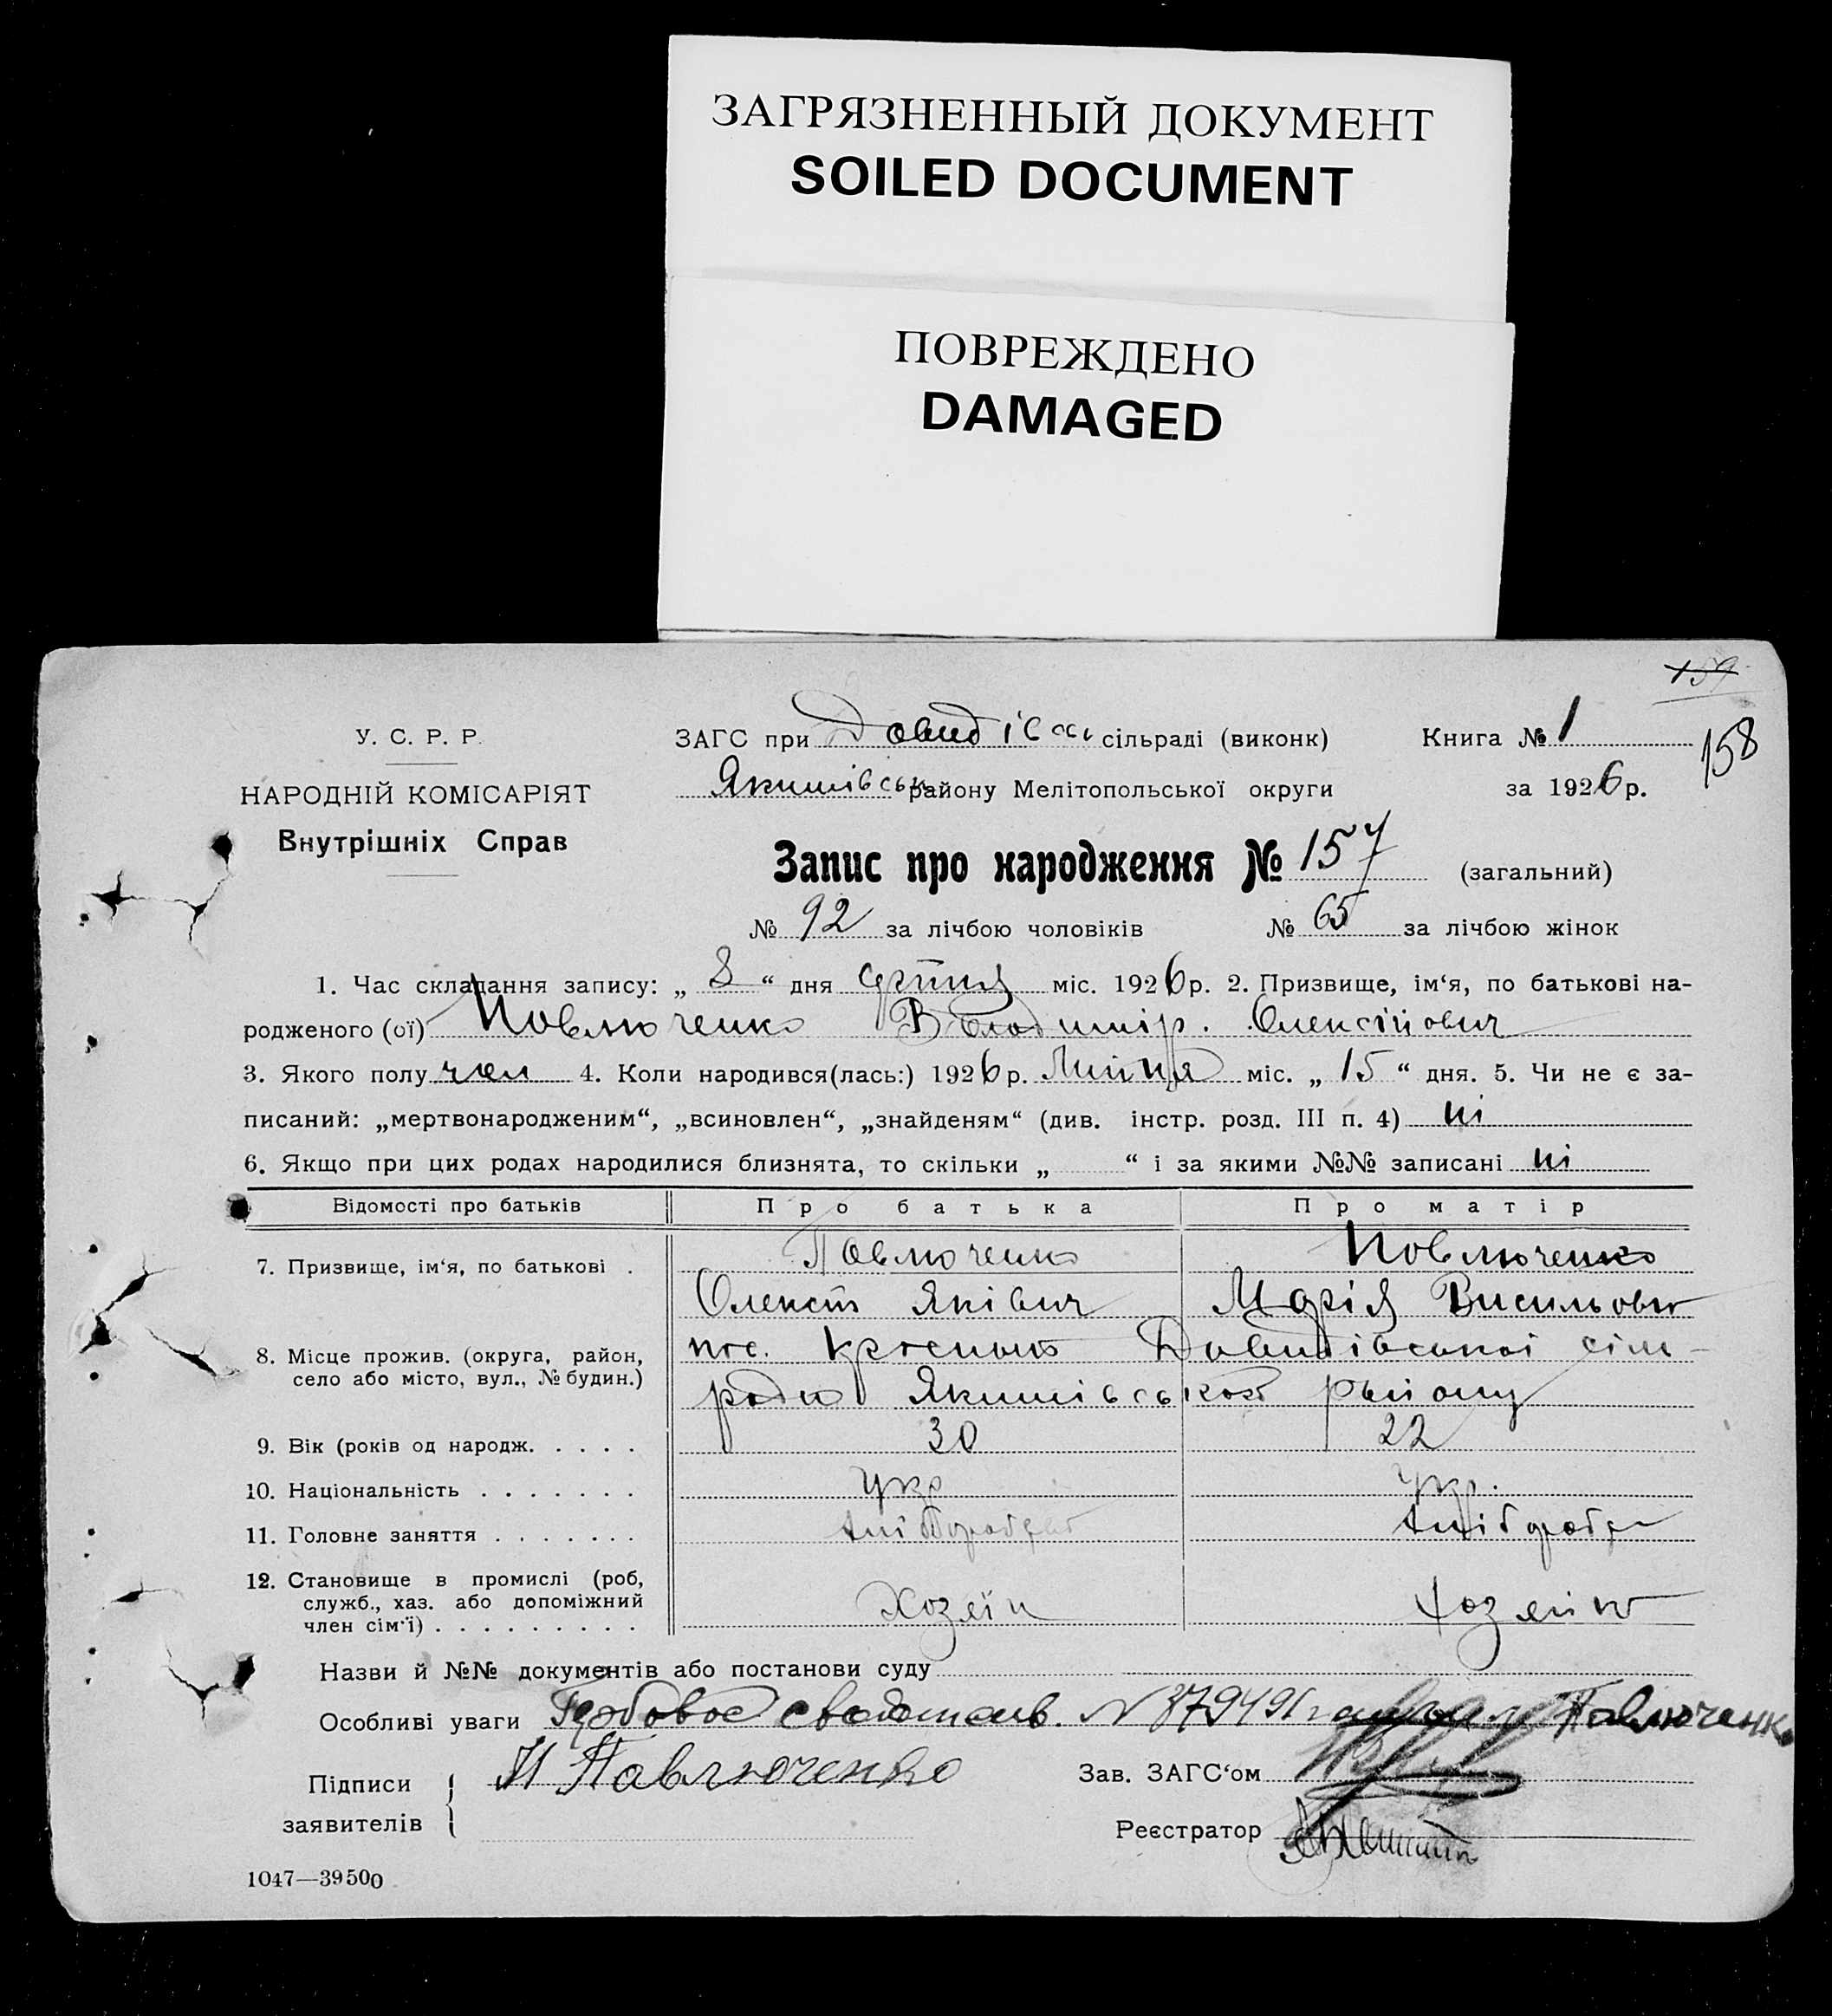 ЗАГРЯЗНЕННЫЙ ДОКУМЕНТ
SOILED DOCUMENT
ПОВРЕЖДЕНО
DAMAGED
159
158
У. С. Р. Р.
НАРОДНІЙ КОМІСАРІЯТ
Внутрішніх Справ
ЗАГС при Довидівск сільраді (виконк) Книга № 1
Якимівськ району Мелітопольської округи за 1926 р.
Запис про народження № 157 (загальний)
№ 92 за лічбою чоловіків № 65 за лічбою жінок
1. Час складання запису: „ 8 “ дня серпня міс. 1926 р. 2. Призвище, ім‘я, по батькові на-
родженого (ої) Повлюченко Володимір. Олексійович
3. Якого полу чол 4. Коли народився(лась:) 1926 р. Липця міс. „ 15 “ дня. 5. Чи не є за-
писаний: „мертвонародженим“, „всиновлен“, „знайденям“ (див. інстр. розд. III п. 4) ні
6. Якщо при цих родах народилися близнята, то скільки „ “ і за якими №№ записані ні
Відомості про батьків Про батька Про матір
7. Призвище, ім‘я, по батькові . Повлюченко Повлюченко
Олексій Яківич Марія Васильовн
8. Місце прожив. (округа, район,
село або місто, вул., № будин.)
пос. Довидівської сіль-
ради Якимівського району
9. Вік (років од народж. . . . . 30 22
10. Національність . . . . . . . Укр Укр.
11. Головне заняття . . . . . . . хліборобст хліборобст
12. Становище в промислі (роб,
служб., хаз. або допоміжний
член сім‘ї) . . . . . . . . . Хозяїн Хозяйк
Назви й №№ документів або постанови суду
Особливі уваги Гербовое свидетельв. N 879491 Павлюченк
Підписи заявителів И Павлюченко
Зав. ЗАГС‘ом
Реєстратор
1047—39500